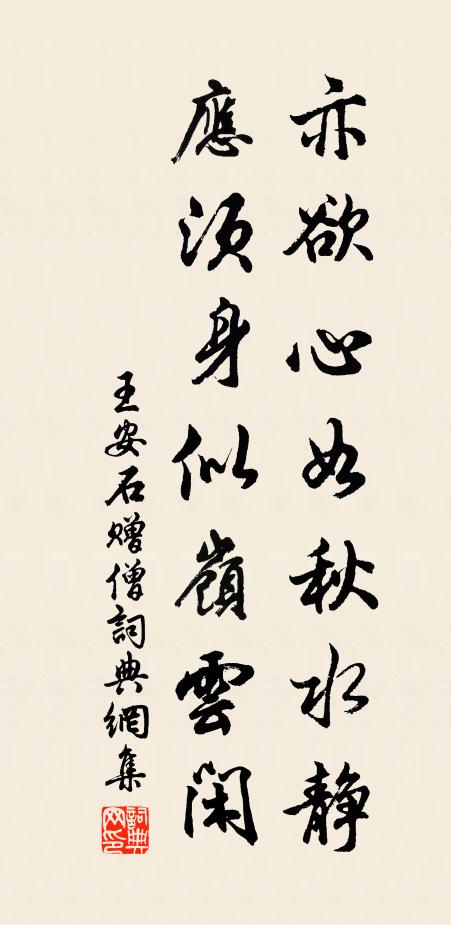 亦欲心如秋水静
應須身似嶺雲閑
王安石贈僧詞典網集
詞典网印